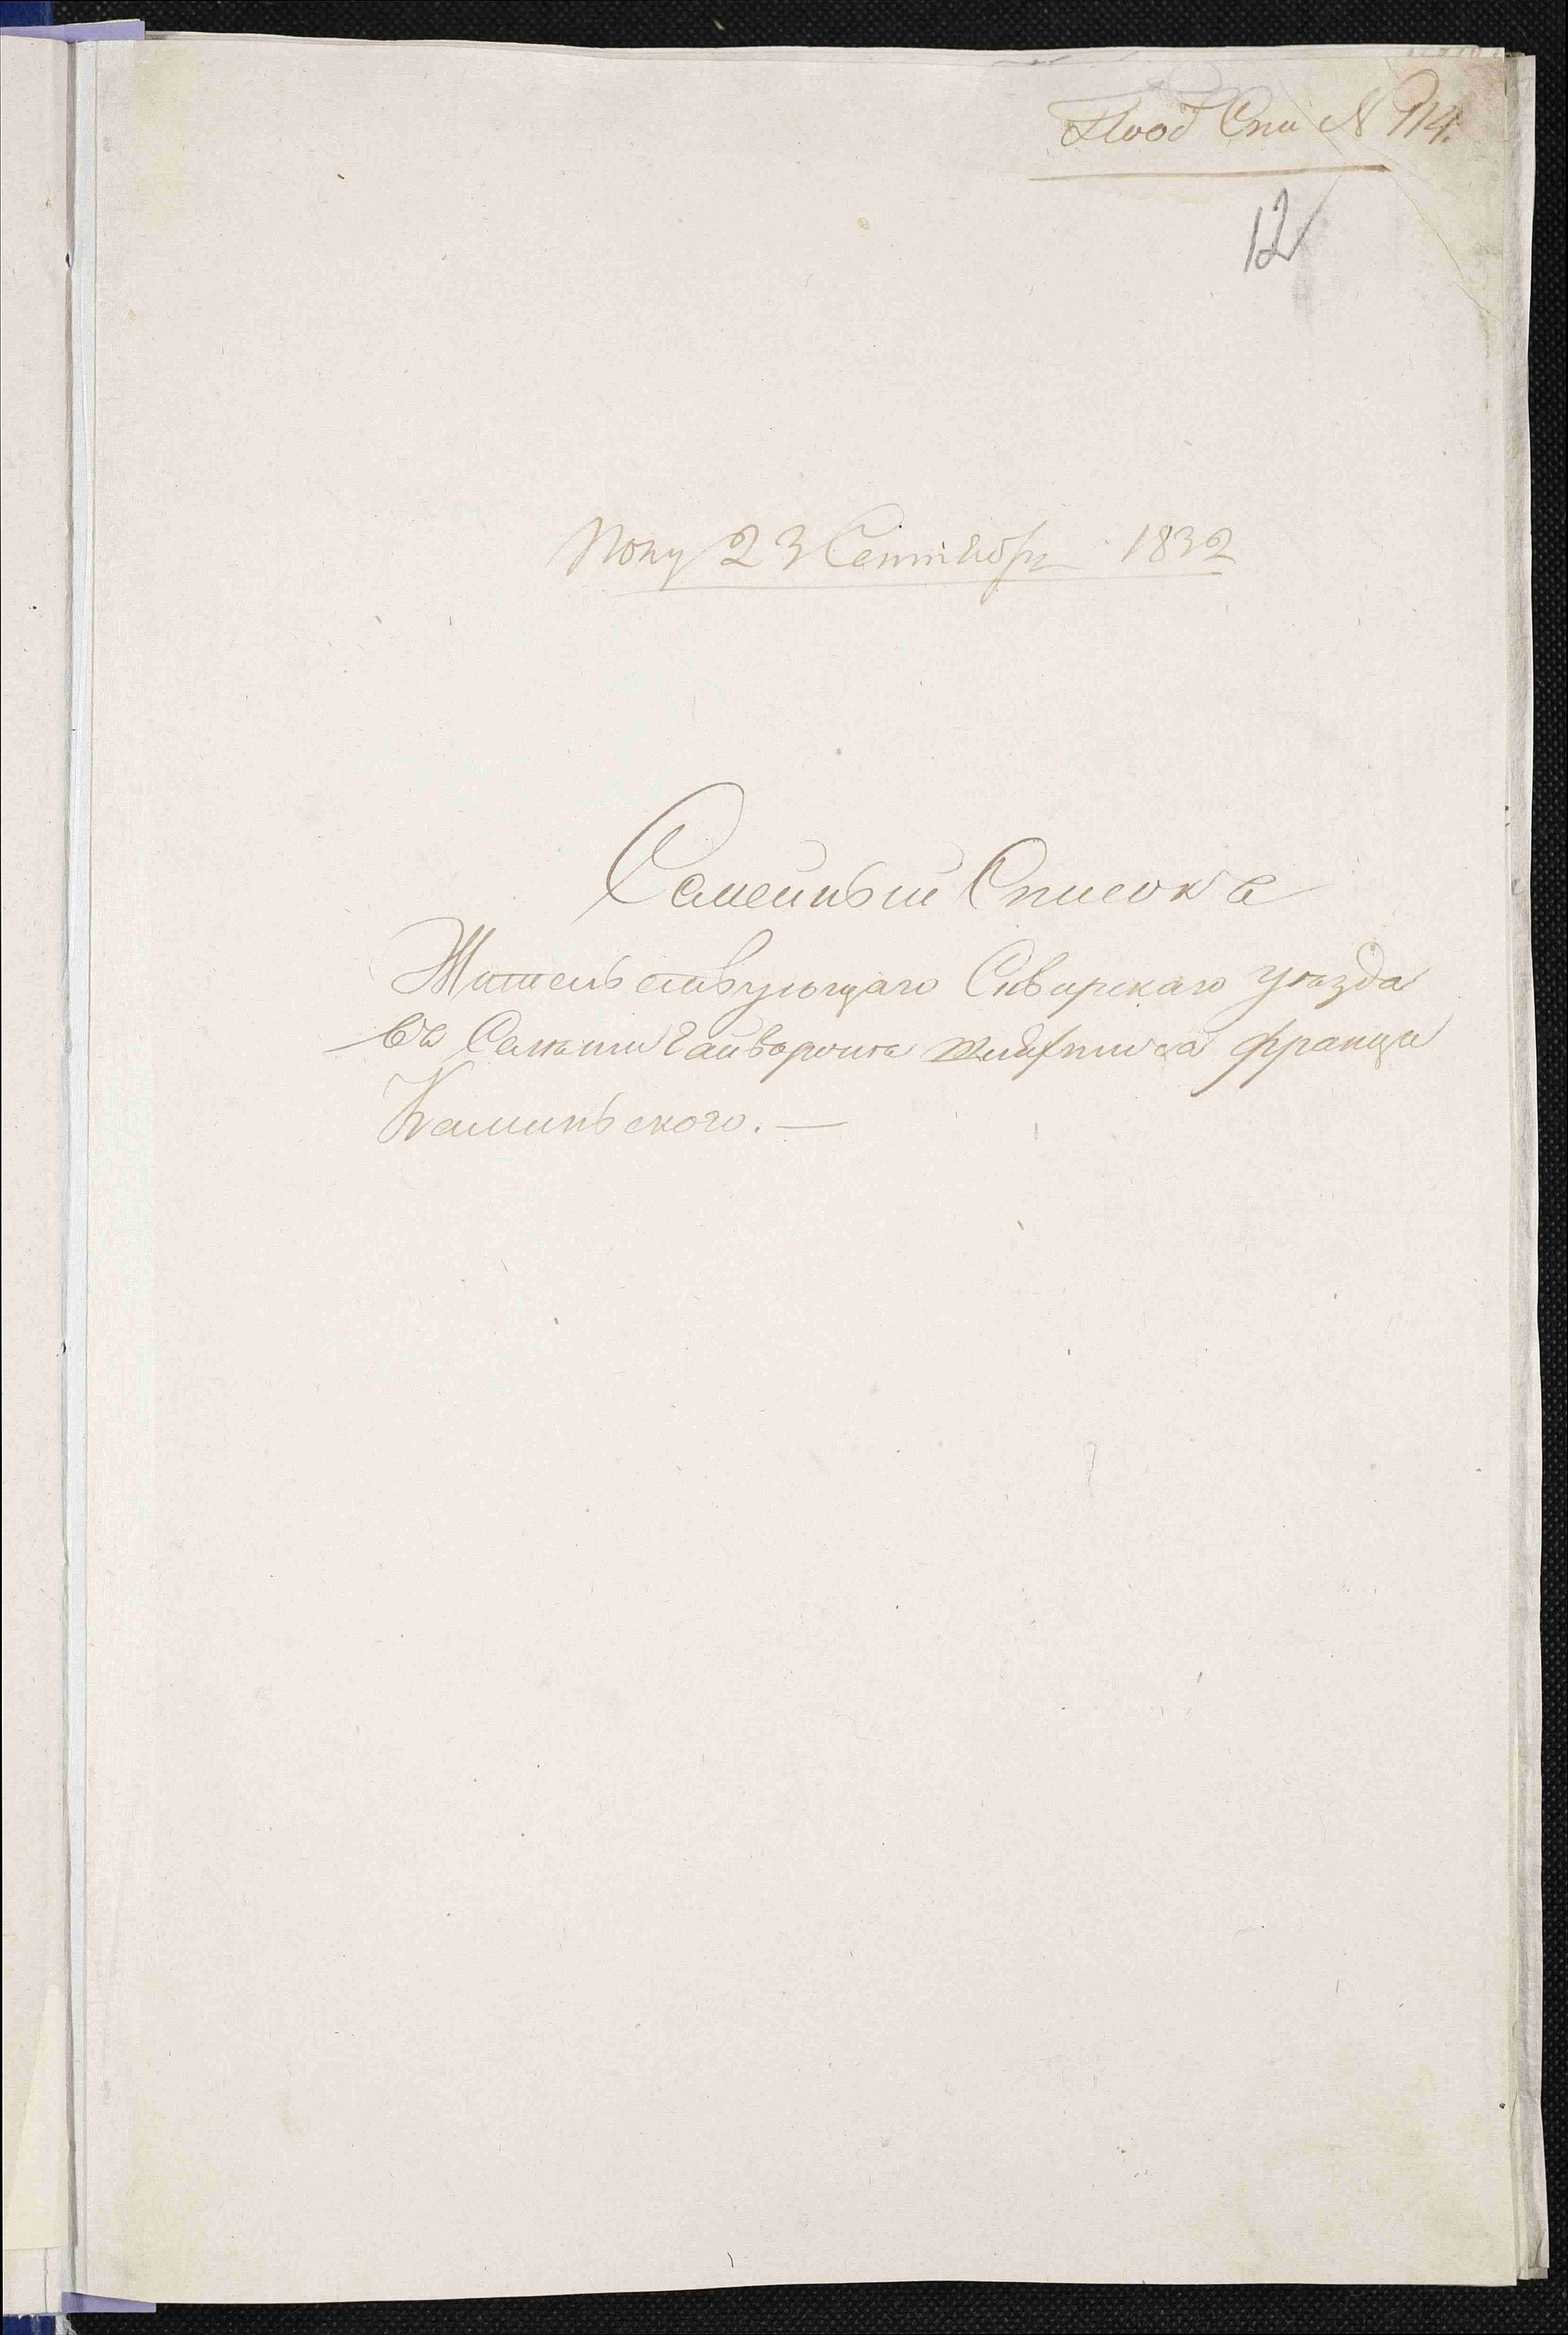 Спи N 114.
12
Полу 23 Сентября 1832
Семейный Списокъ
Жительствующаго Сквирскаго уезда
въ Селении Гайворонка шляхтича Франца
Каминьского.—